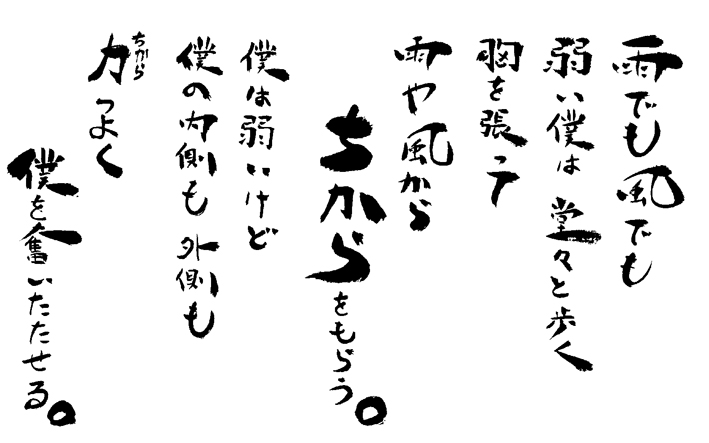 雨でも風でも
弱い僕は 堂々と歩く
胸を張って
雨や風から
ちからをもらう。
僕は弱いけど
僕の内側も 外側も
力つよく
ちから
僕を奮いたたせる。